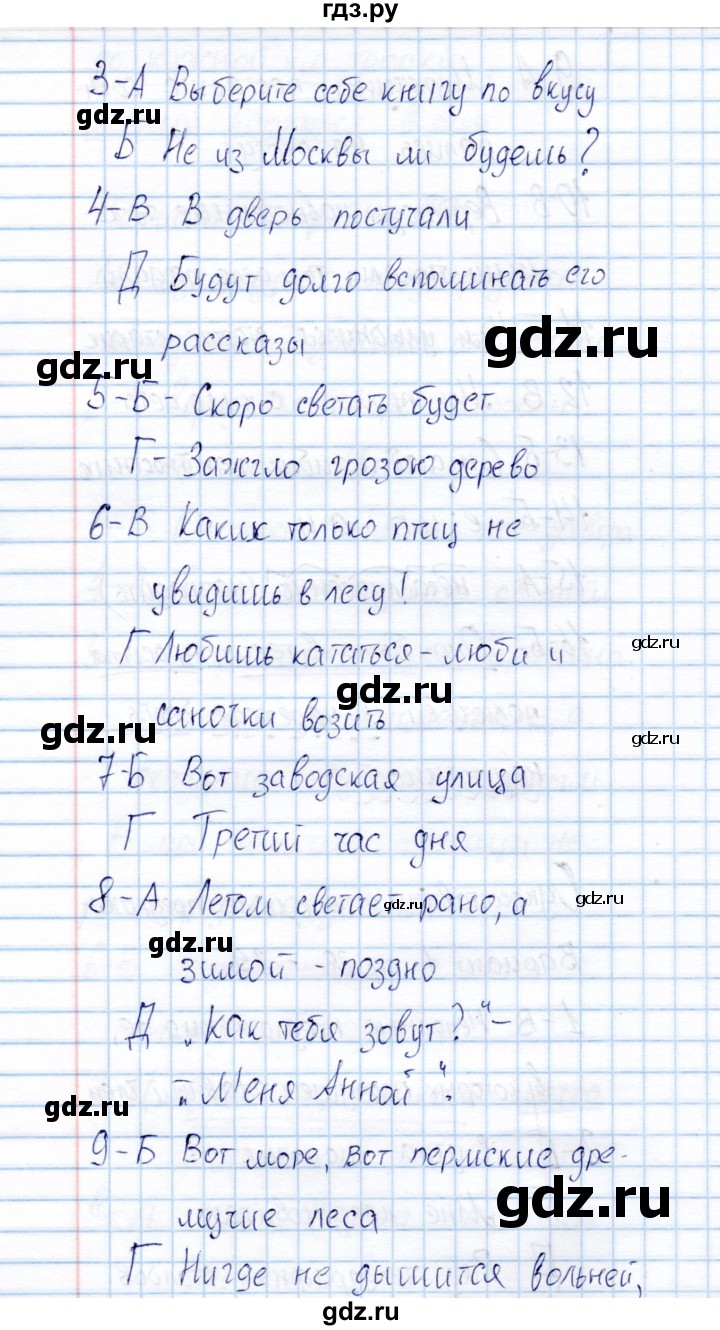 гдз.ру
3-А Выберите себе книгу по вкусу
gdz.ru
Б Не из Москвы ли будешь?
4-В В дверь постучали
Д Будут долго вспоминать его
gdz.ru
рассказы
gdz.ru
5-Б- Скоро светать будет
Г- Зажгло грозою дерево
6-В Каких только птиц не
увидишь в лесу!
gdz.ru
Г Любишь кататься - люби и
gdz.ru
саночки возить
gdz.ru
gdz.ru
7-Б Вот заводская улица
Г Третий час дня
8-А Летом светает рано, а
gdz.ru
gdz.ru
gdz.ru
зимой - поздно
Д „Как тебя зовут?" -
„Меня Анной".
gdz.ru
9-Б Вот море, вот пермские дре-
gdz.ru
мучие леса
Г Нигде не дышится вольней,
gdz.ru